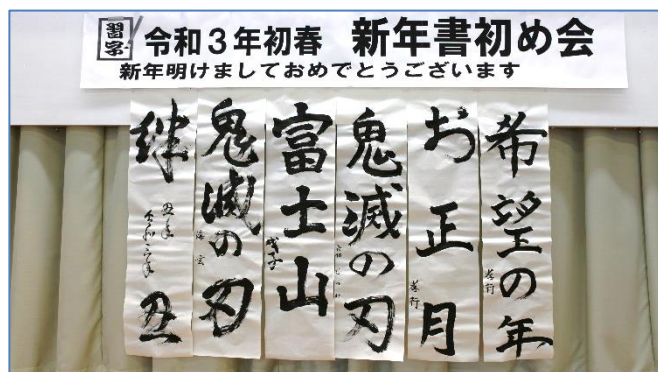 習字
令和3年初春 新年書初め会
新年明けましておめでとうございます
希望の年
孝行
お正月
孝行
鬼滅の刃
富士山
鬼滅の刃
絆
丑年
令和三年
丑